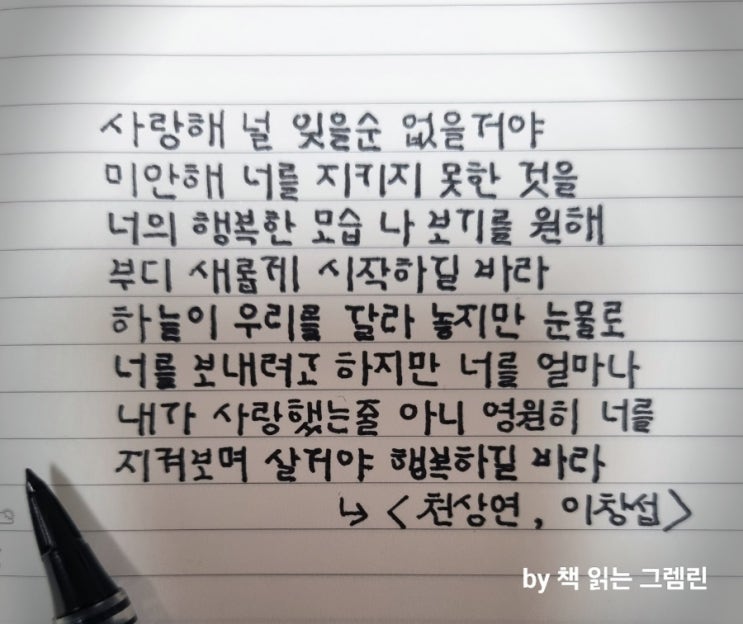 사랑해 널 잊을순 없을거야
미안해 너를 지키지 못한 것을
너의 행복한 모습 나 보기를 원해
부디 새롭게 시작하길 바라
하늘이 우리를 달라 놓지만 눈물로
너를 보내려고 하지만 너를 얼마나
내가 사랑했는줄 아니 영원히 너를
지켜보며 살거야 행복하길 바라
↳ <천상연, 이창섭>
by 책 읽는 그렘린